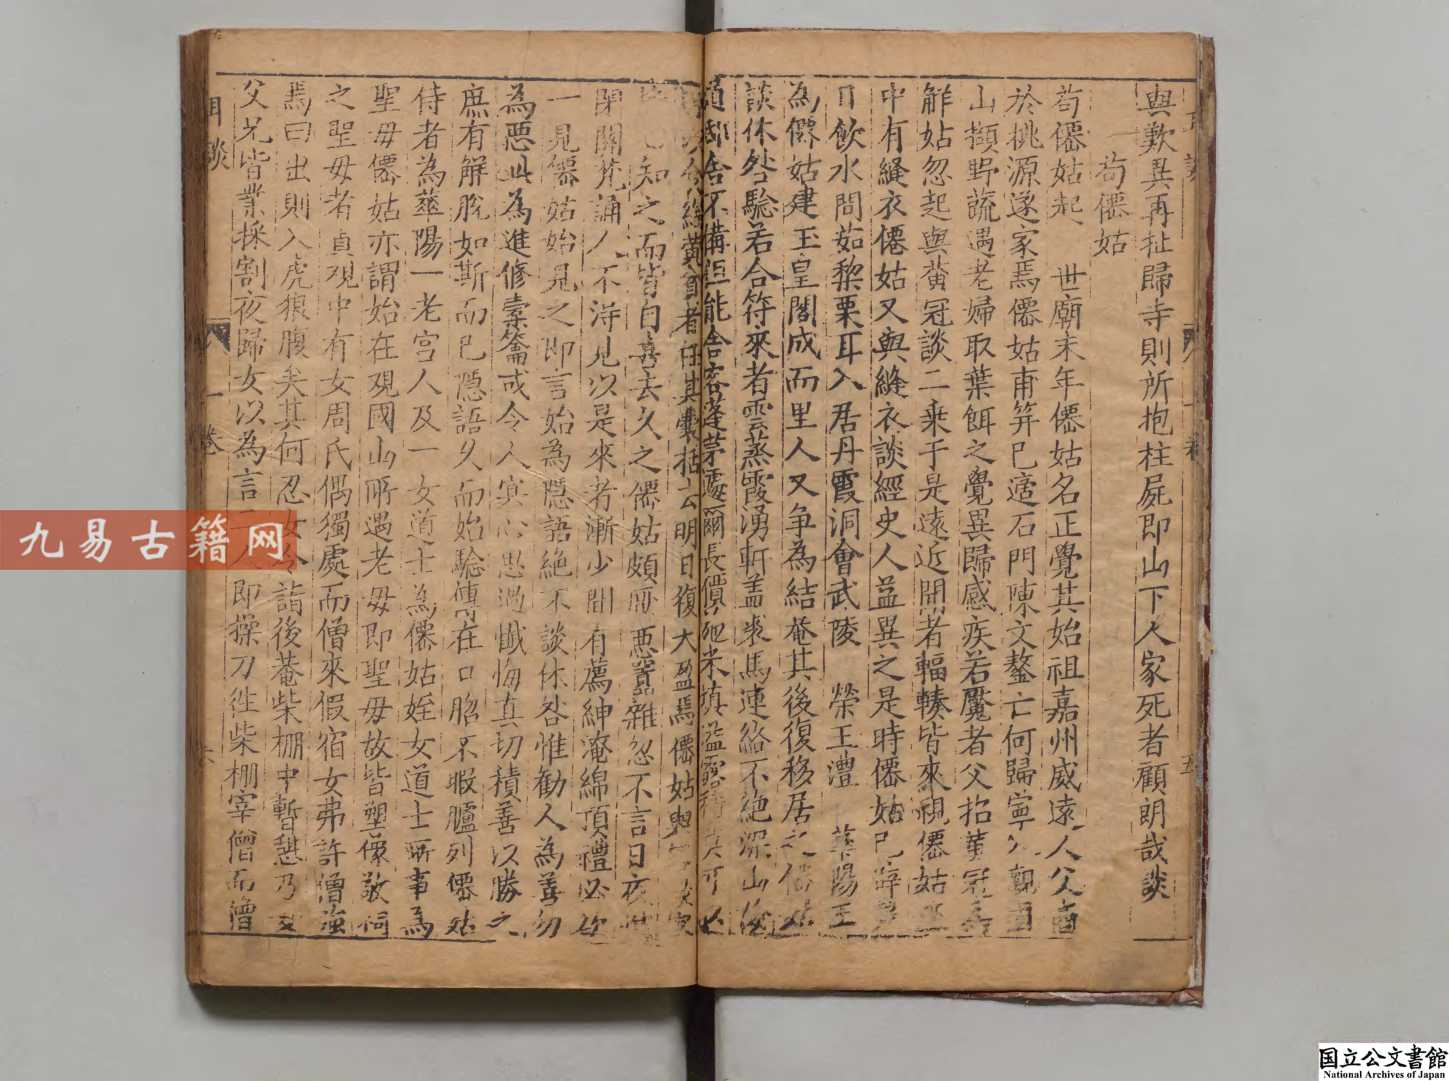 與歎異再扯歸寺則所抱柱屍即山下人家死者顧朗哉談
荀僊姑
荀僊姑起 世廟末年僊姑名正覺其始祖嘉州威遠人父商
於桃源遂家焉僊姑甫笄已適石門陳文鏊亡何歸寧父親
山擷野蔬遇老婦取葉餌之覺異歸感疾若魘者父招黃冠
解姑忽起與黃冠談二乘于是遠近聞者輻輳皆來視僊姑
中有縫衣僊姑又與縫衣談經史人益異之是時僊姑已辟
日飲水間茹棃栗耳入居丹霞洞會武陵 榮王澧 華陽王
為僊姑建玉皇閣成而里人又爭為結菴其後復移居之僊姑
談休咎驗若合符來者雲蒸霞湧軒蓋裘馬連絡不絕深山
道邸舍不搆
長價
明日復大盈焉僊姑
知之而皆自喜去久之僊姑頗厭惡賓雜忽不言日夜
閉關梵誦人不得見以是來者漸少間有薦紳淹綿頂禮必欲
一見僊姑始見之即言始為隱語絕不談休咎惟勸人為善勿
為惡此為進修橐籥或令人冥心思過懺悔真切積善以勝之
庶有解脫如斯而已隱語久而始驗傳在口吻不暇臚列僊姑
侍者為華陽一老宮人及一女道士為僊姑姪女道士所事為
聖母僊姑亦謂始在覌國山所遇老母即聖母故皆塑像敬祠
之聖母者貞观中有女周氏偶獨處而僧來假宿女弗許僧強
焉曰出則入虎狼腹矣其何忍女令詣後菴柴棚中暫憩乃
父兄皆業採割夜歸女以為言二人即操刀徃柴棚宰僧而僧
閒談
卷
九易古籍网
国立公文書館
National Archives of Japan